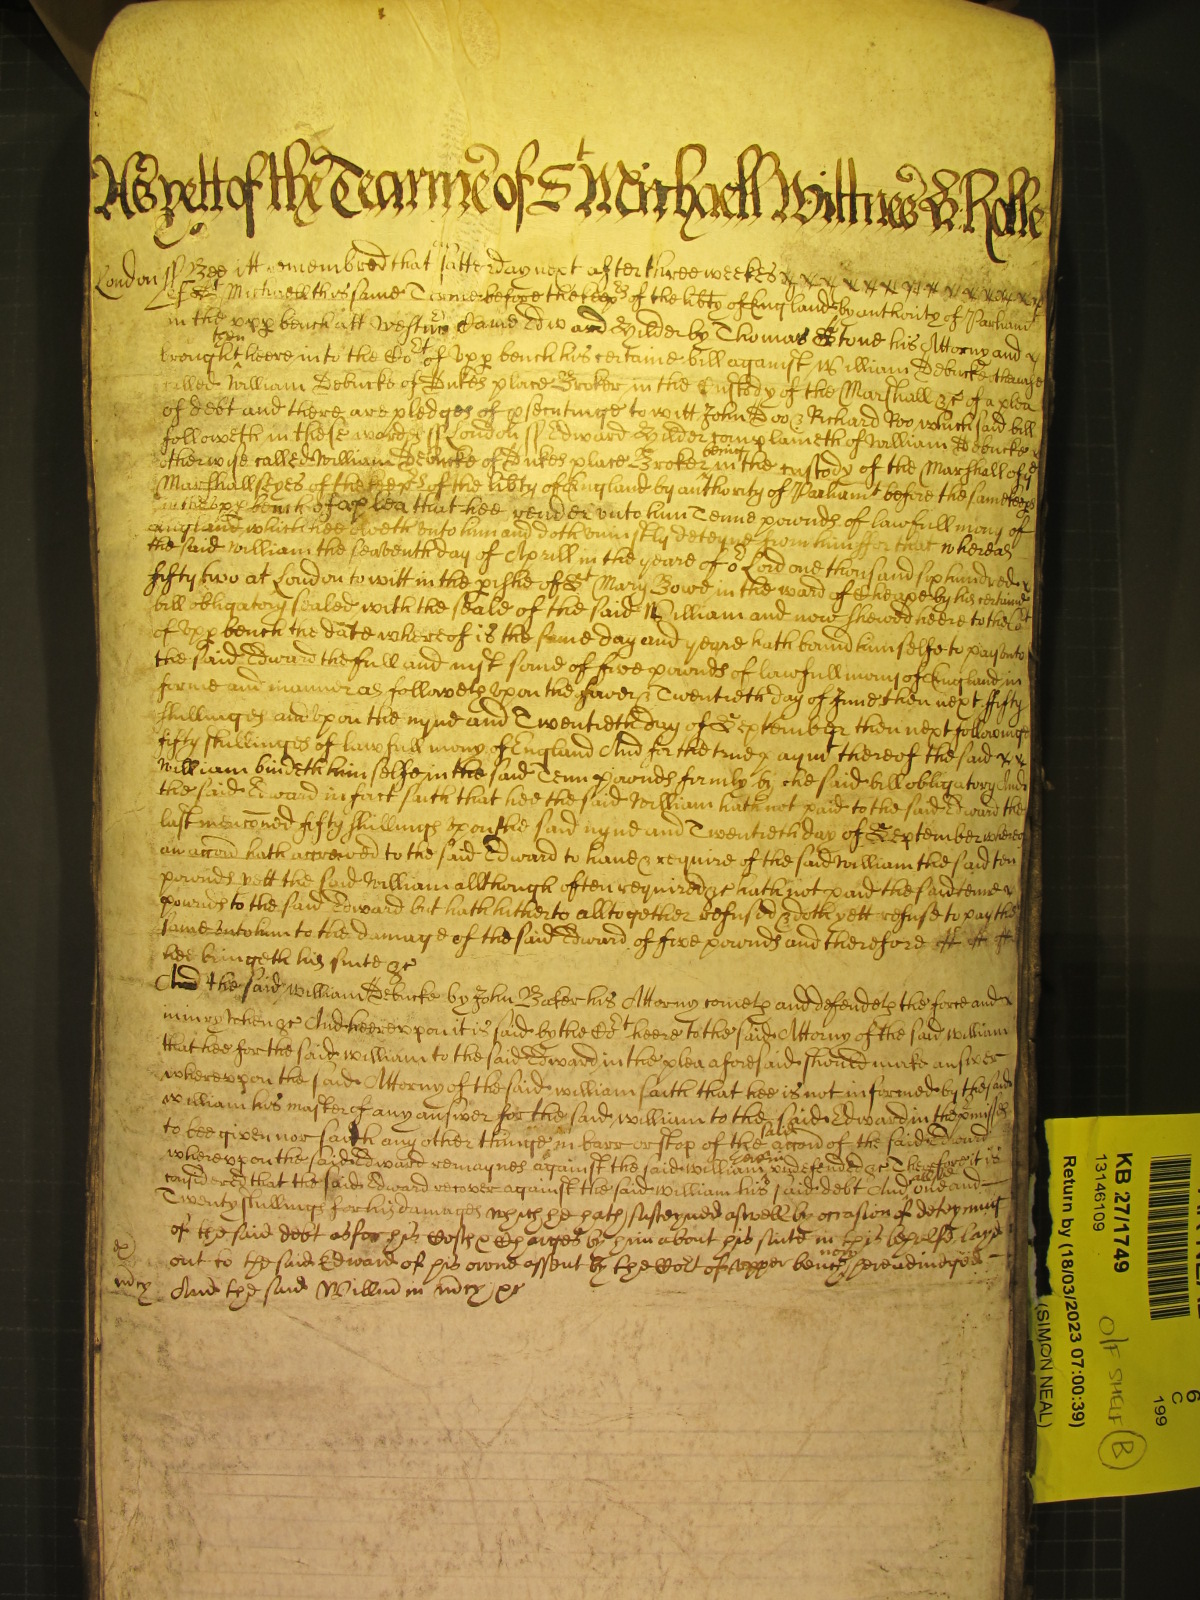 As yett of the Tearme of St Michaell Wittnes H Rolle
London ss Bee itt remembred that on satterday next after three weekes
of St Michaell this same Terme before the keeprs of the libty of England by authority of Parliamt
in the vpp bench att Westmr came Edward Gilder by Thomas Stone his Attorny and
brought heere into the Cort of vpp bench then his certaine bill against William Debucke otherwise
called William Debucke of Dukes place Broker in the Custody of the Marshall &c of a plea
of debt and there are pledges of psecutinge to witt John Doo & Richard Roo which said bill
followeth in these words ss London ss Edward Gilder complaineth of William Debucke
otherwise called William Debucke of Dukes place Broker beinge in the custody of the Marshall of ye
Marshallseyes of the keeprs of the libty of England by authority of Parliamt before the same keeprs
in the vpp bench of a plea that hee render vnto him Tenne pownds of lawfull mony of
England which hee oweth vnto him and doth vniustly deteyne from him ffor that whereas
the said William the seaventh day of Aprill in the yeare of or Lord one thousand six hundred
fifty two at London to witt in the pishe of St Mary Bowe in the ward of Cheape by his certaine
bill obligatory sealed with the seale of the said William and now shewed heere to the Cort
of vpp bench the date whereof is the same day and yeare hath bound himselfe to pay vnto
the said Edward the full and iust some of five pownds of lawfull mony of England in
forme and manner as followeth vpon the fower & Twentieth day of June then next fifty
shillinges and vpon the nyne and Twentieth day of September then next followinge
fifty shillinges of lawfull mony of England And for the true paymt thereof the said
William bindeth himselfe in the said Tenn pownds firmly by the said bill obligatory And
the said Edward in fact saith that hee the said William hath not paid to the said Edward the
last menconed fifty shillings vpon the said nyne and Twentieth day of September whereby
an accon hath accrewed to the said Edward to have & require of the said William the said ten
pownds yett the said William allthough often required &c hath not paid the said tenne
pownds to the said Edward but hath hitherto alltogether refused & doth yett refuse to pay the
same vnto him to the damage of the said Edward of five pownds and therefore
hee bringeth his suite &c
And the said William Debucke by John Baker his Attorny cometh and defendeth the force and
iniury when &c And heerevpon it is said by the Cort heere to the said Attorny of the said William
that hee for the said William to the said Edward in the plea aforesaid should make answer
wherevpon the said Attorny of the said William saith that hee is not informed by the said
William his master of any answer for the said William to the said Edward in the pmisses
to bee given nor saith any other thinge in barr or stop of the said accon of the said Edward
wherevpon the said Edward remaynes against the said William therein vndefended &c Therefore it is
considered that the said Edward recover against the said William his said debt And alsoe one and
Twenty shillings for his damages which he hath susteyned aswell by occasion of deteyning
of the said debt as for his Costs & Charges by him about his suite in this behalfe layd
out to the said Edward of his owne assent by the Cort of vpper bench now here adiudged
And the said Willm in mcy &c
mcy
KB 27/1749
13146109
Return by (18/03/2023 07:00:39)
(SIMON NEAL)
O/F SHELF B
6
C
199